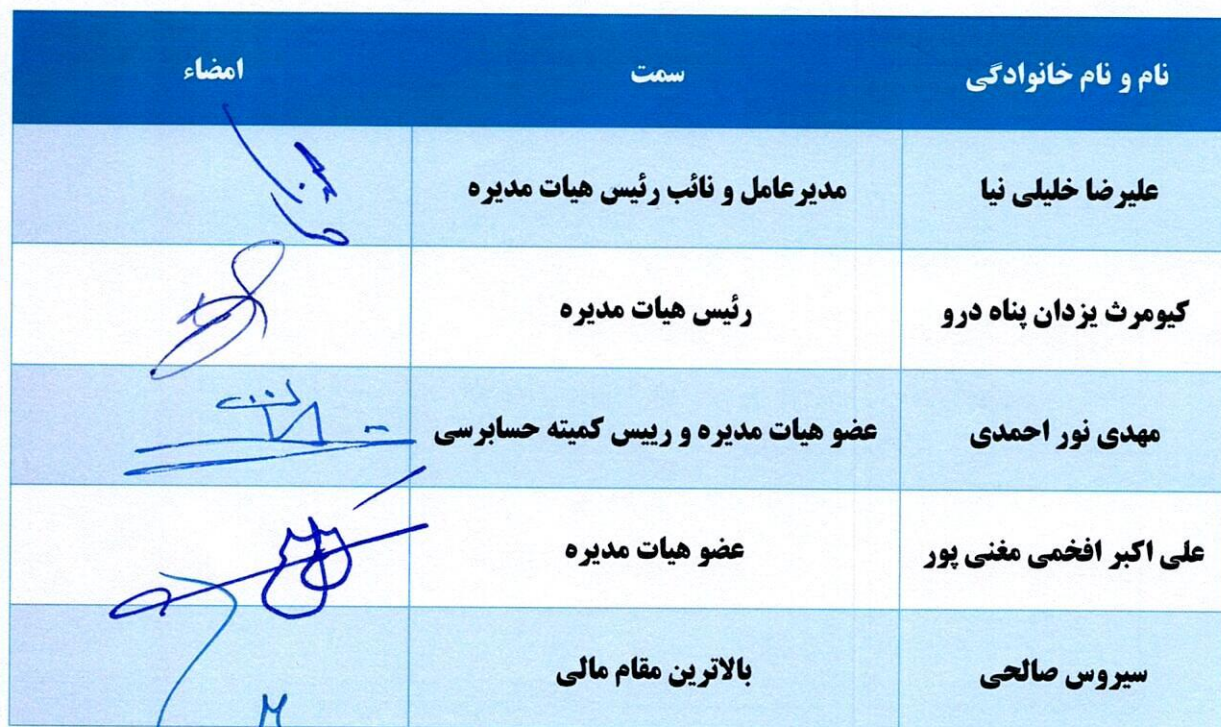 نام و نام خانوادگی سمت امضاء
علیرضا خلیلی نیا مدیرعامل و نائب رئیس هیات مدیره
کیومرث یزدان پناه درو رئیس هیات مدیره
مهدی نور احمدی عضو هیات مدیره و رییس کمیته حسابرسی
علی اکبر افخمی مغنی پور عضو هیات مدیره
سیروس صالحی بالاترین مقام مالی